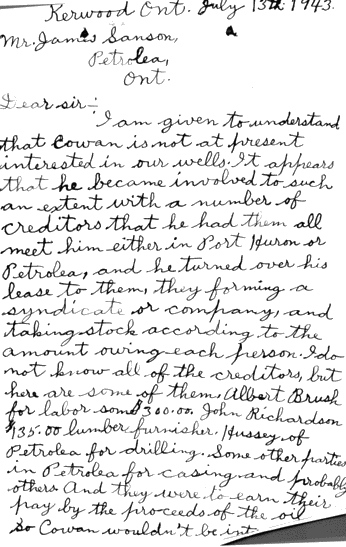 Kerwood Ont. July 13th 1943.
Mr. James Sanson,
Petrolea,
Ont.
Dear sir:-
I am given to understand
that Cowan is not at present
interested in our wells. It appears
that he became involved to such
an extent with a number of
creditors that he had them all
meet him either in Port Huron or
Petrolea, and he turned over his
lease to them, they forming a
syndicate or company, and
taking stock according to the
amount owing each person. I do
not know all of the creditors, but
here are some of them, Albert Brush
for labor some $300.00. John Richardson
$135.00 lumber furnisher. Hussey of
Petrolea for drilling. Some other parties
in Petrolea for casing and probably
others. And they were to earn their
pay by the proceeds of the oil
So Cowan wouldn't be int